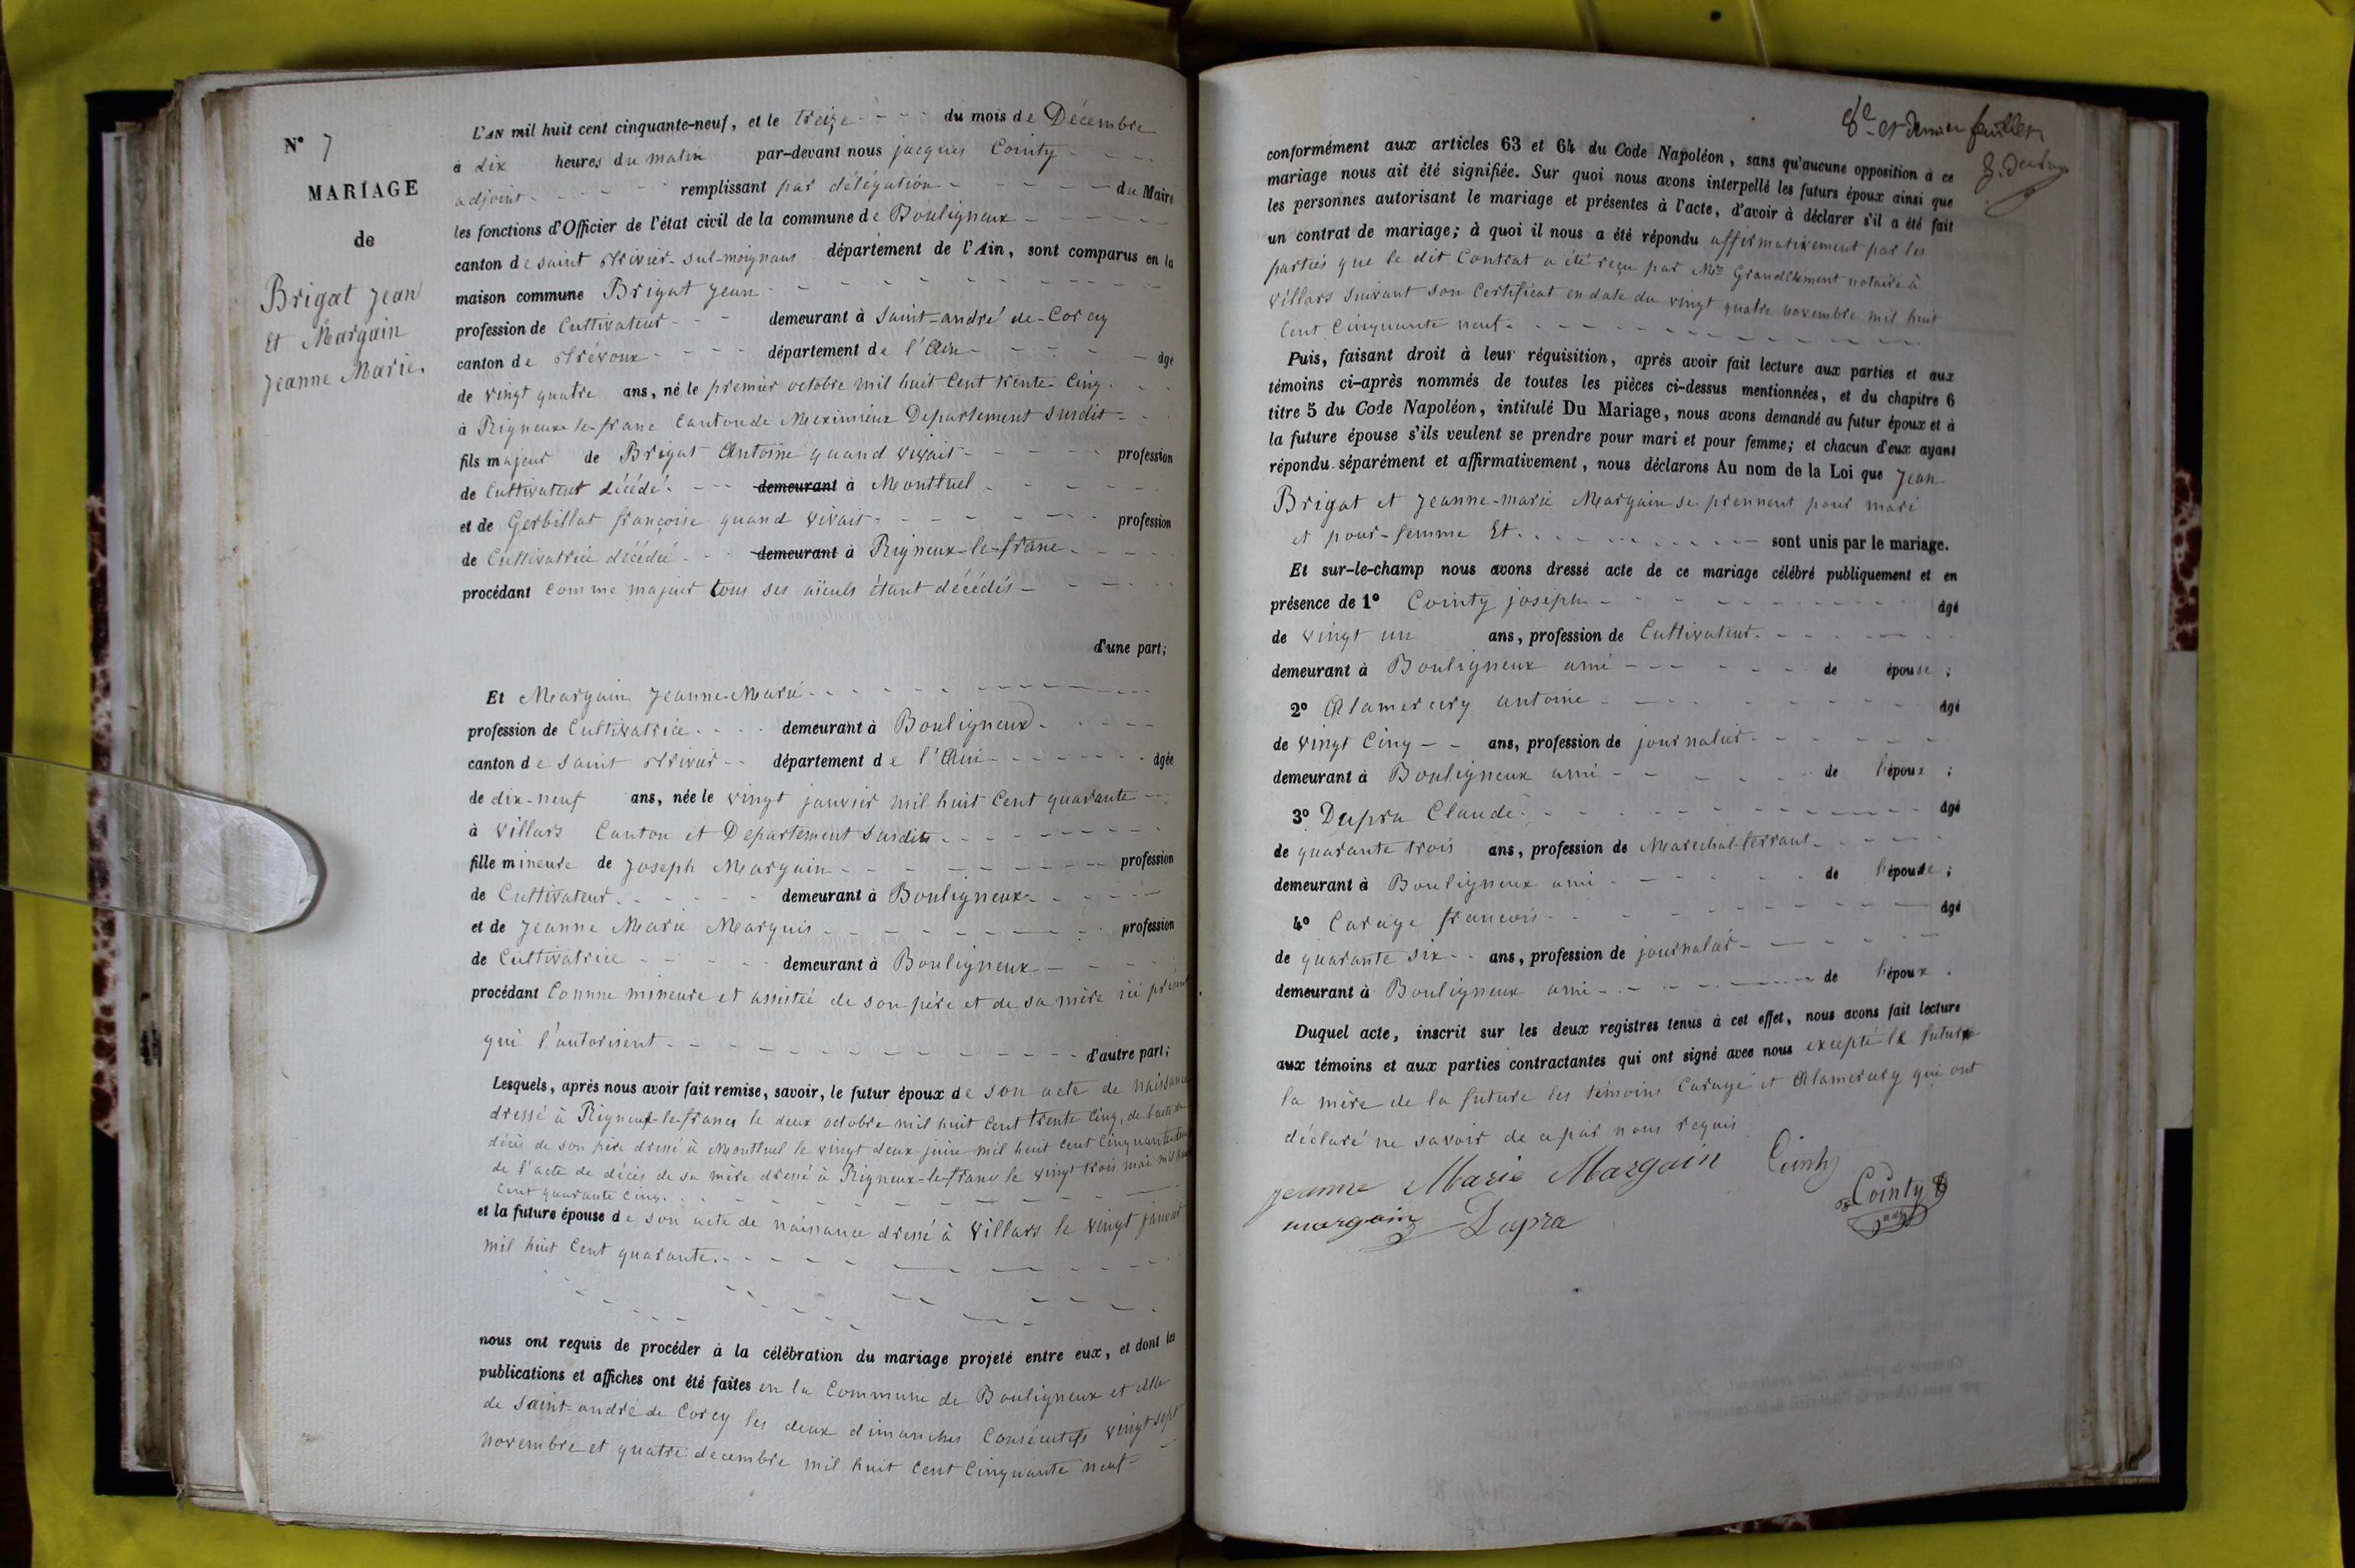 N° 7
MARIAGE
de
Brigat Jean
Et Margain
Jeanne Marie.
L'AN mil huit cent cinquante-neuf, et le treize du mois de Décembre
à dix heures du matin par-devant nous jacques Cointy
adjoint remplissant par délégation du Maire
les fonctions d'Officier de l'état civil de la commune de Bouligneux
canton de saint trivier-sur-moignans département de l'Ain, sont comparus en la
maison commune Brigat Jean
profession de Cultivateur demeurant à Saint-andré de-Corcy
canton de trévoux département de l'Ain âgé
de vingt quatre ans, né le premier octobre mil huit Cent trente Cinq
à Rigneux-le-franc Canton de Meximieux Departement Susdit
fils majeur de Brigat Antoine quand vivait profession
de Cultivateur décédé demeurant à Montluel
et de Gerbillat françoise quand vivait profession
de Cultivatrice décédée demeurant à Rigneux-le-franc
procédant comme majeur tous ses aïeuls étant décédés
d'une part;
Et Margain Jeanne-Marie
profession de Cultivatrice demeurant à Bouligneux
canton de saint trivier département de l'Ain âgée
de dix-neuf ans, née le vingt janvier mil huit Cent quarante
à Villars Canton et Departement susdits
fille mineure de Joseph Margain profession
de Cultivateur demeurant à Bouligneux
et de Jeanne Marie Marquis profession
de Cultivatrice demeurant à Bouligneux
procédant Comme mineure et assistée de son père et de sa mère ici
qui l'autorisent d'autre part;
Lesquels, après nous avoir fait remise, savoir, le futur époux de son acte de naissance
dressé à Rigneux-le-franc le deux octobre mil huit Cent trente Cinq, de l'acte de
décès de son père dressé à Montluel le vingt deux juin mil huit cent Cinquante
de l'acte de décès de sa mère dressé à Rigneux-le-franc le vingt trois mai mil huit
Cent quarante Cinq.
et la future épouse de son acte de naissance dressé à Villars le vingt janvier
mil huit Cent quarante.
nous ont requis de procéder à la célébration du mariage projeté entre eux, et dont les
publications et affiches ont été faites en la Commune de Bouligneux et
de Saint-andré de Corcy les deux dimanches Consécutifs vingt sept
novembre et quatre decembre mil huit Cent Cinquante neuf
8e et dernier feuillet
conformément aux articles 63 et 64 du Code Napoléon, sans qu'aucune opposition à ce
mariage nous ait été signifiée. Sur quoi nous avons interpellé les futurs époux ainsi que
les personnes autorisant le mariage et présentes à l'acte, d'avoir à déclarer s'il a été fait
un contrat de mariage; à quoi il nous a été répondu affirmativement par les
parties que le dit Contrat a été reçu par Me Grandclément notaire à
Villars suivant son Certificat en date du vingt quatre novembre mil huit
Cent Cinquante neuf.
Puis, faisant droit à leur réquisition, après avoir fait lecture aux parties et aux
témoins ci-après nommés de toutes les pièces ci-dessus mentionnées, et du chapitre 6
titre 5 du Code Napoléon, intitulé Du Mariage, nous avons demandé au futur époux et à
la future épouse s'ils veulent se prendre pour mari et pour femme; et chacun d'eux ayant
répondu séparément et affirmativement, nous déclarons Au nom de la Loi que Jean
Brigat et Jeanne-marie Margain se prennent pour mari
et pour-femme Et sont unis par le mariage.
Et sur-le-champ nous avons dressé acte de ce mariage célébré publiquement et en
présence de 1° Cointy joseph âgé
de vingt un ans, profession de Cultivateur
demeurant à Bouligneux ami de épouse;
2° Alamercery antoine âgé
de vingt Cinq ans, profession de journalier
demeurant à Bouligneux ami de l'époux;
3° Dupra Claude âgé
de quarante trois ans, profession de Marechal-ferrant
demeurant à Bouligneux ami de l'épouse;
4° Carage francois âgé
de quarante six ans, profession de journalier
demeurant à Bouligneux ami de l'époux.
Duquel acte, inscrit sur les deux registres tenus à cet effet, nous avons fait lecture
aux témoins et aux parties contractantes qui ont signé avec nous excepté le futur
la mère de la future les témoins Carage et Alamercery qui ont
déclaré ne savoir de ce par nous requis
jeanne Marie Margain Cointy
Cointy
margain Dupra
adj